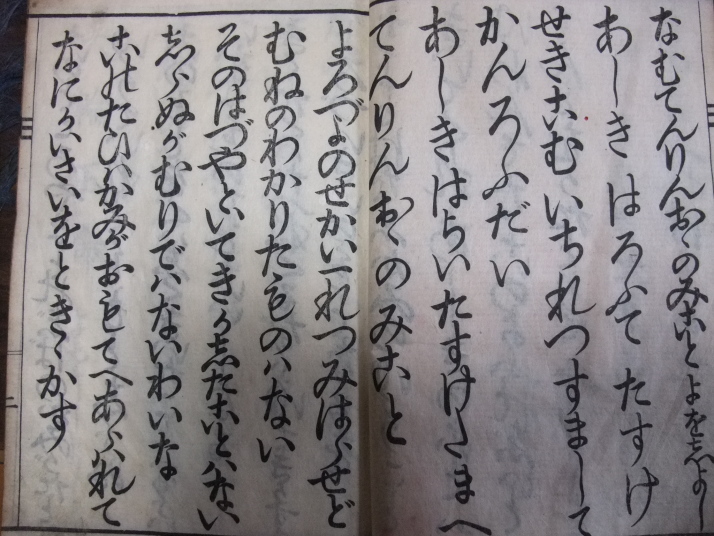 なむてんりんおゝのみこと
あしき はろふて たすけ
せきこむ いちれつすまして
かんろふだい
あしきはらいたすけたまへ
てんりんおゝのみこと
よろづよのせかい一れつみはらせど
むねのわかりたものハない
そのはづやといてきかしたことハない
しらぬがむりでハないわいな
このたびハかみがおもてへあらハれて
なにかいさいをときゝかす
二